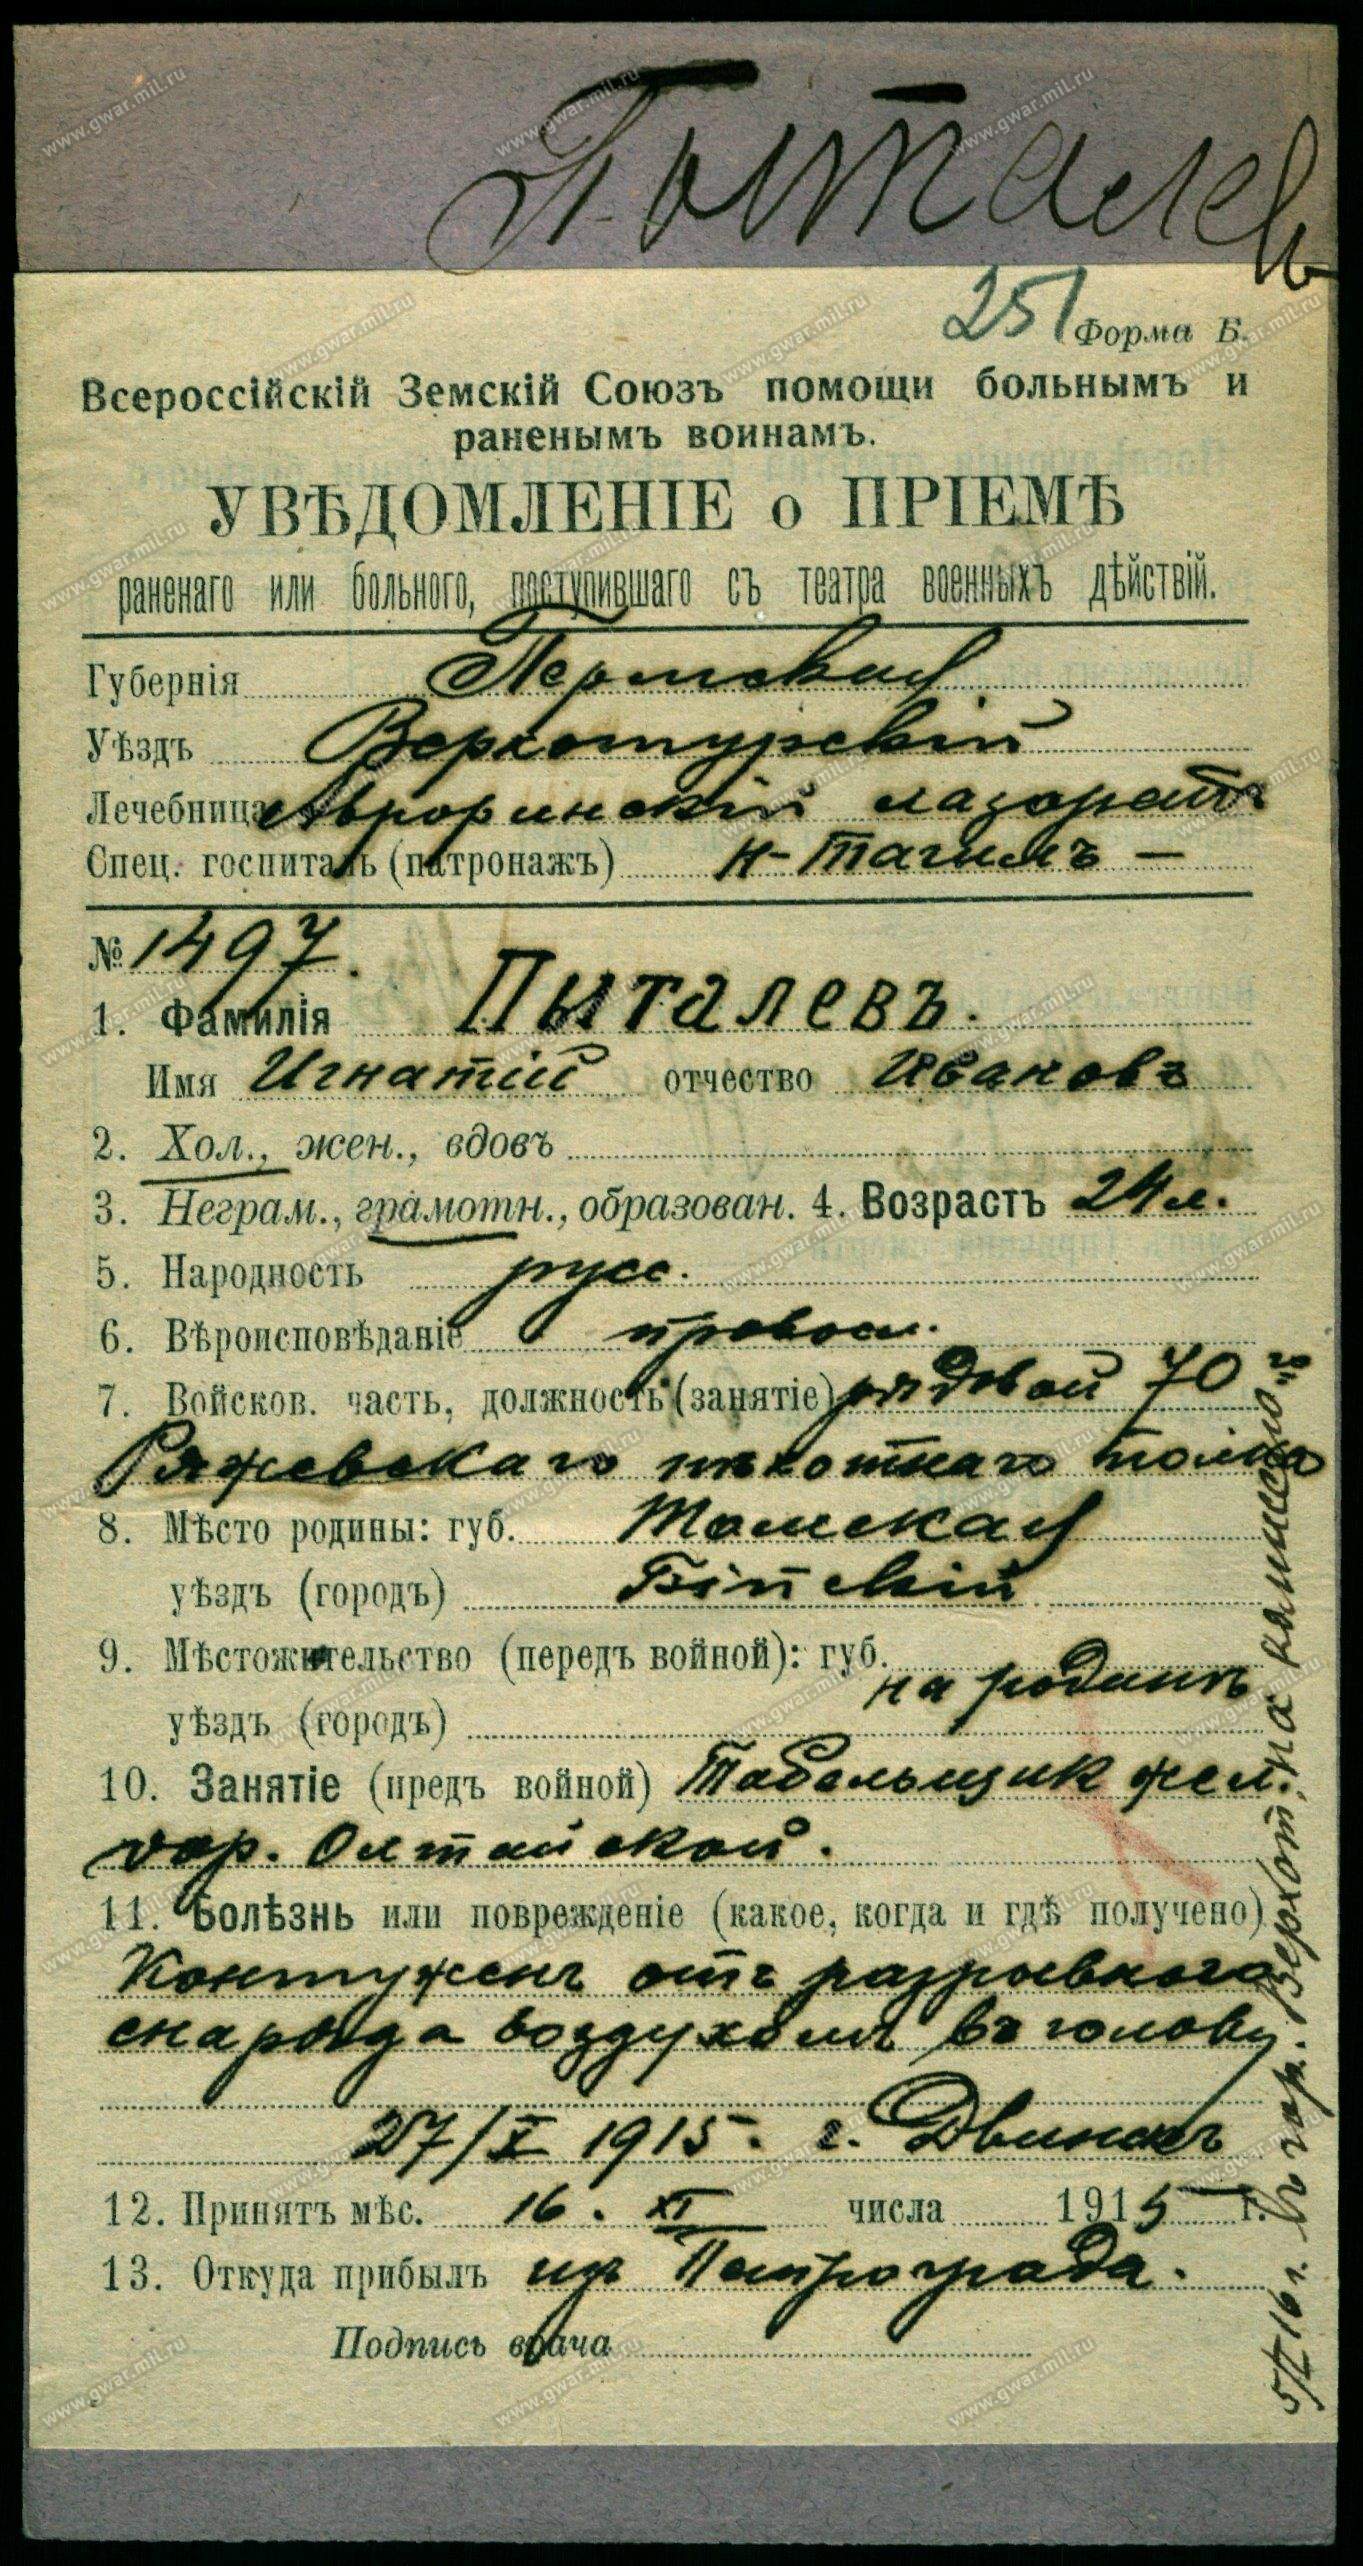 Пыталевъ
251 Форма Б.
Всероссійскій Земскій Союзъ помощи больнымъ и
раненымъ воинамъ.
УВѢДОМЛЕНІЕ о ПРІЕМѢ
раненаго или больного, поступившаго съ театра военныхъ дѣйствій.
Губернія Пермская
Уѣздъ Верхотурскій
Лечебница Авроринскій лазаретъ
Спец. госпиталь (патронажъ) Н-Тагилъ —
№ 1497.
1. Фамилія Пыталевъ.
Имя Игнатій отчество Ивановъ
2. Хол., жен., вдовъ
3. Неграм., грамотн., образован. 4. Возрастъ 24 л.
5. Народность русс.
6. Вѣроисповѣданіе правосл.
7. Войсков. часть, должность (занятіе) рядовой 70го
Ряжевскаго пѣхотнаго полка
8. Мѣсто родины: губ. Томская
уѣздъ (городъ) Бійскій
9. Мѣстожительство (передъ войной): губ.
на родинѣ
уѣздъ (городъ)
10. Занятіе (предъ войной) Табельщик жел.
дор. Олтайской.
11. Болѣзнь или поврежденіе (какое, когда и гдѣ получено)
Контуженъ отъ разрывного
снаряда воздухомъ въ голову
27/X 1915. г. Двинскъ
12. Принятъ мѣс. 16. XI числа 1915 г.
13. Откуда прибылъ изъ Петрограда.
Подпись врача
16 г. Въ гор. Верхот. на комиссію
www.gwar.mil.ru